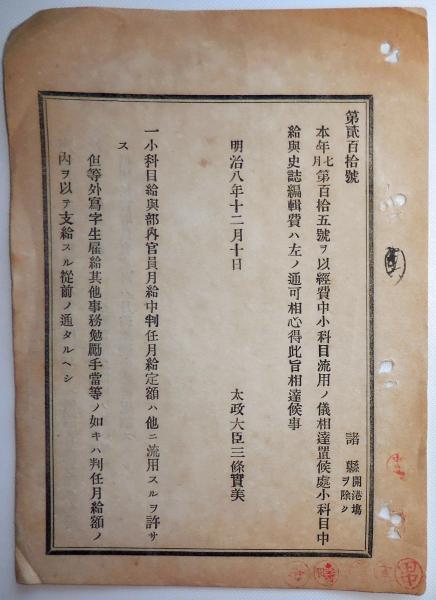 第貳百拾號
諸縣 開港場ヲ除ク
本年七月第百拾五號ヲ以經費中小科目流用ノ儀相達置候處小科目中
給與史誌編輯費ハ左ノ通可相心得此旨相達候事
明治八年十二月十日
太政大臣三條實美
一小科目給與部內官員月給中判任月給定額ハ他ニ流用スルヲ許サ
ス
但等外寫字生雇給其他事務勉勵手當等ノ如キハ判任月給額ノ
內ヲ以テ支給スル從前ノ通タルヘシ